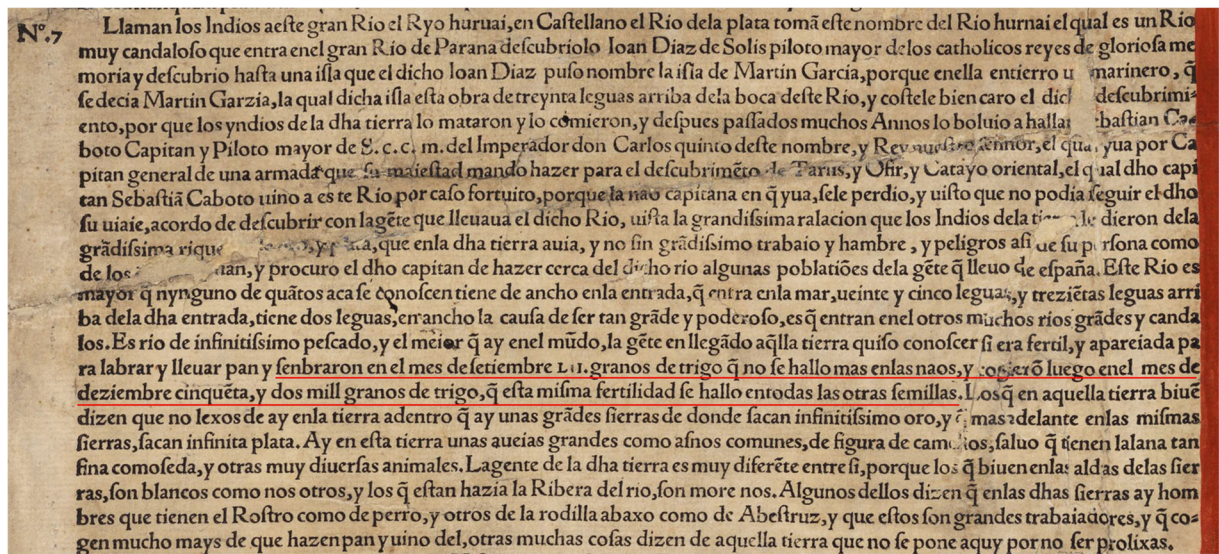 Nº.7
Llaman los Indios aeste gran Rio el Ryo huruai, en Castellano el Rio dela plata tomã este nombre del Rio hurnai el qual es un Rio
muy candaloso que entra enel gran Rio de Parana descubriolo Ioan Diaz de Solis piloto mayor delos catholicos reyes de gloriosa me
moria y descubrio hasta una isla que el dicho Ioan Diaz puso nombre la isla de Martin Garcia, porque enella entierro u marinero, q̃
se decia Martin Garzia, la qual dicha isla esta obra de treynta leguas arriba dela boca deste Rio, y costele bien caro el dic descubrimi-
ento, por que los yndios de la dha tierra lo mataron y lo comieron, y despues passados muchos Annos lo boluio a halla bastian Ca
boto Capitan y Piloto mayor de S.c.c.m. del Imperador don Carlos quinto deste nombre, y Rey nuestro sennor, el qual yua por Ca
pitan general de una armada que su maiestad mando hazer para el descubrimẽto de Tarsis, y Ofir, y Catayo oriental, el qual dho capi
tan Sebastiã Caboto uino a es te Rio por caso fortuito, porque la nao capitana en q̃ yua, sele perdio, y uisto que no podia seguir el dho
su uiaie, acordo de descubrir con lagẽte que lleuaua el dicho Rio, uista la grandissima ralacion que los Indios dela dieron dela
grãdissima rique y plata, que enla dha tierra auia, y no sin grãdissimo trabaio y hambre, y peligros asi de su persona como
de los uan, y procuro el dho capitan de hazer cerca del dicho rio algunas poblatiões dela gẽte q̃ lleuo de españa. Este Rio es
mayor q̃ nynguno de quãtos aca se conoscen tiene de ancho enla entrada, q̃ entra enla mar, ueinte y cinco leguas, y treziẽtas leguas arri
ba dela dha entrada, tiene dos leguas, en ancho la causa de ser tan grãde y poderoso, es q̃ entran enel otros muchos rios grãdes y canda
los. Es rio de infinitissimo pescado, y el meior q̃ ay enel mũdo, la gẽte en llegãdo aq̃lla tierra quiso conoscer si era fertil, y apareiada pa
ra labrar y lleuar pan y senbraron en el mes de setiembre LII. granos de trigo q̃ no se hallo mas enlas naos, y cogierõ luego enel mes de
deziembre cinquẽta, y dos mill granos de trigo, q̃ esta misma fertilidad se hallo entodas las otras semillas. Los q̃ en aquella tierra biuẽ
dizen que no lexos de ay enla tierra adentro q̃ ay unas grãdes sierras de donde sacan infinitissimo oro, y q̃ mas adelante enlas mismas
sierras, sacan infinita plata. Ay en esta tierra unas aueias grandes como asnos comunes, de figura de camelos, saluo q̃ tienen lalana tan
fina como seda, y otras muy diuersas animales. Lagente de la dha tierra es muy diferẽte entre si, porque los q̃ biuen enlas aldas delas sier
ras, son blancos como nos otros, y los q̃ estan hazia la Ribera del rio, son more nos. Algunos dellos dizen q̃ enlas dhas sierras ay hom
bres que tienen el Rostro como de perro, y otros de la rodilla abaxo como de Abestruz, y que estos son grandes trabaiadores, y q̃ co-
gen mucho mays de que hazen pan y uino del, otras muchas cosas dizen de aquella tierra que no se pone aquy por no ser prolixas.